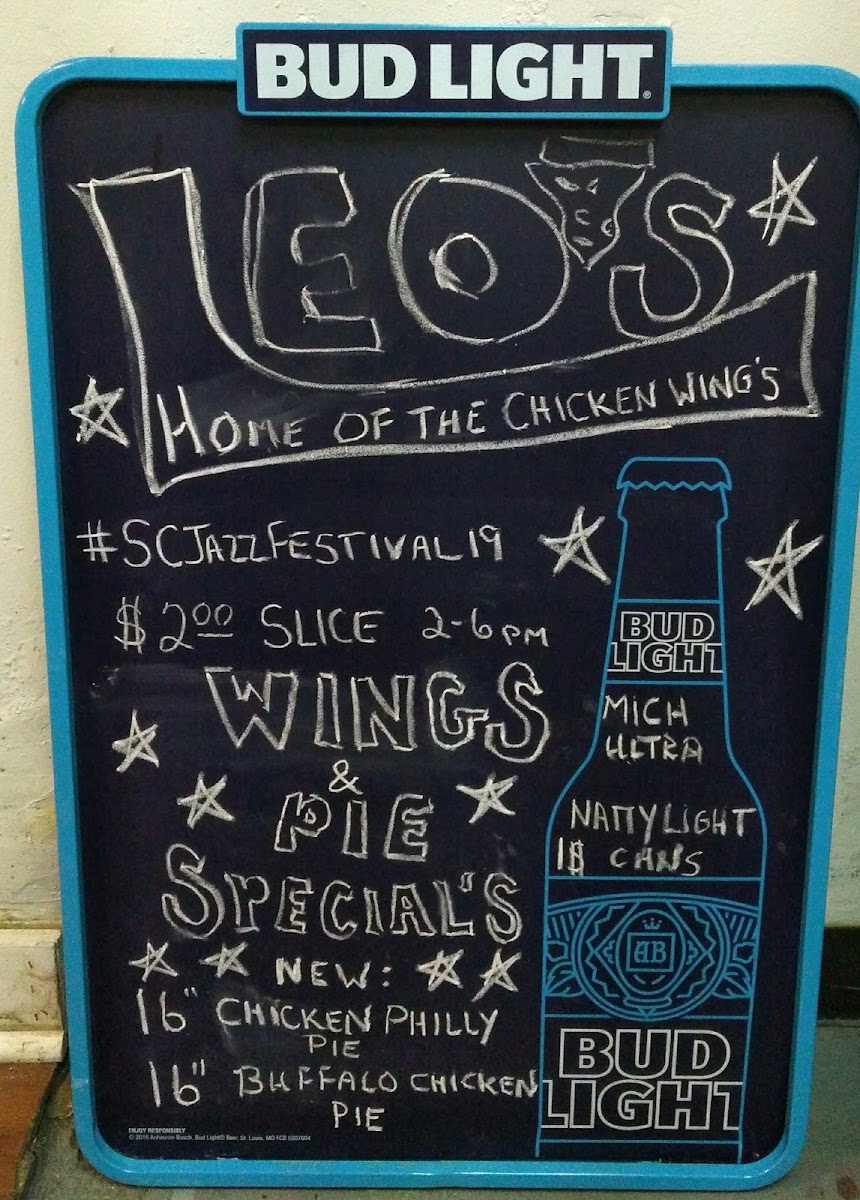 BUD LIGHT®
LEO'S
HOME OF THE CHICKEN WING'S
#SCJAZZFESTIVAL19
$200 SLICE 2-6PM
WINGS
&
PIE
SPECIAL'S
NEW:
16" CHICKEN PHILLY
PIE
16" BUFFALO CHICKEN
PIE
BUD
LIGHT
MICH
ULTRA
NATTYLIGHT
1$ CANS
AB
BUD
LIGHT
ENJOY RESPONSIBLY
© 2016 Anheuser-Busch, Bud Light® Beer, St. Louis, MO